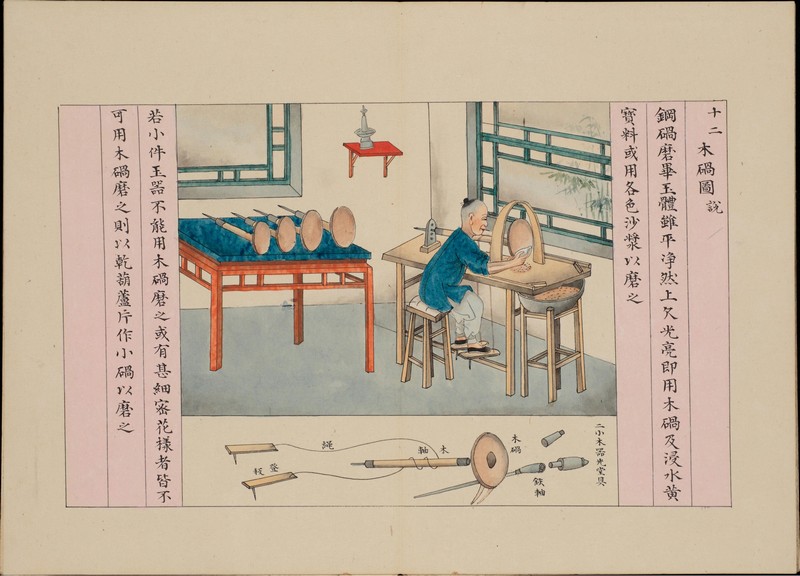 十二 木碢圖說
鋼碢磨畢玉體雖平淨然上欠光亮即用木碢及浸水黃
寳料或用各色沙漿以磨之
二小木器光堂具
木碢
鉄軸
木軸
繩
登板
若小件玉器不能用木碢磨之或有甚細密花樣者皆不
可用木碢磨之則以乾葫蘆片作小碢以磨之